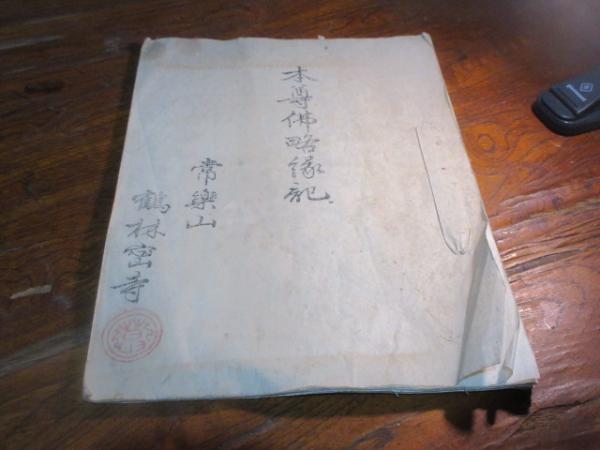 本尊佛略縁記
常樂山
鶴林密寺